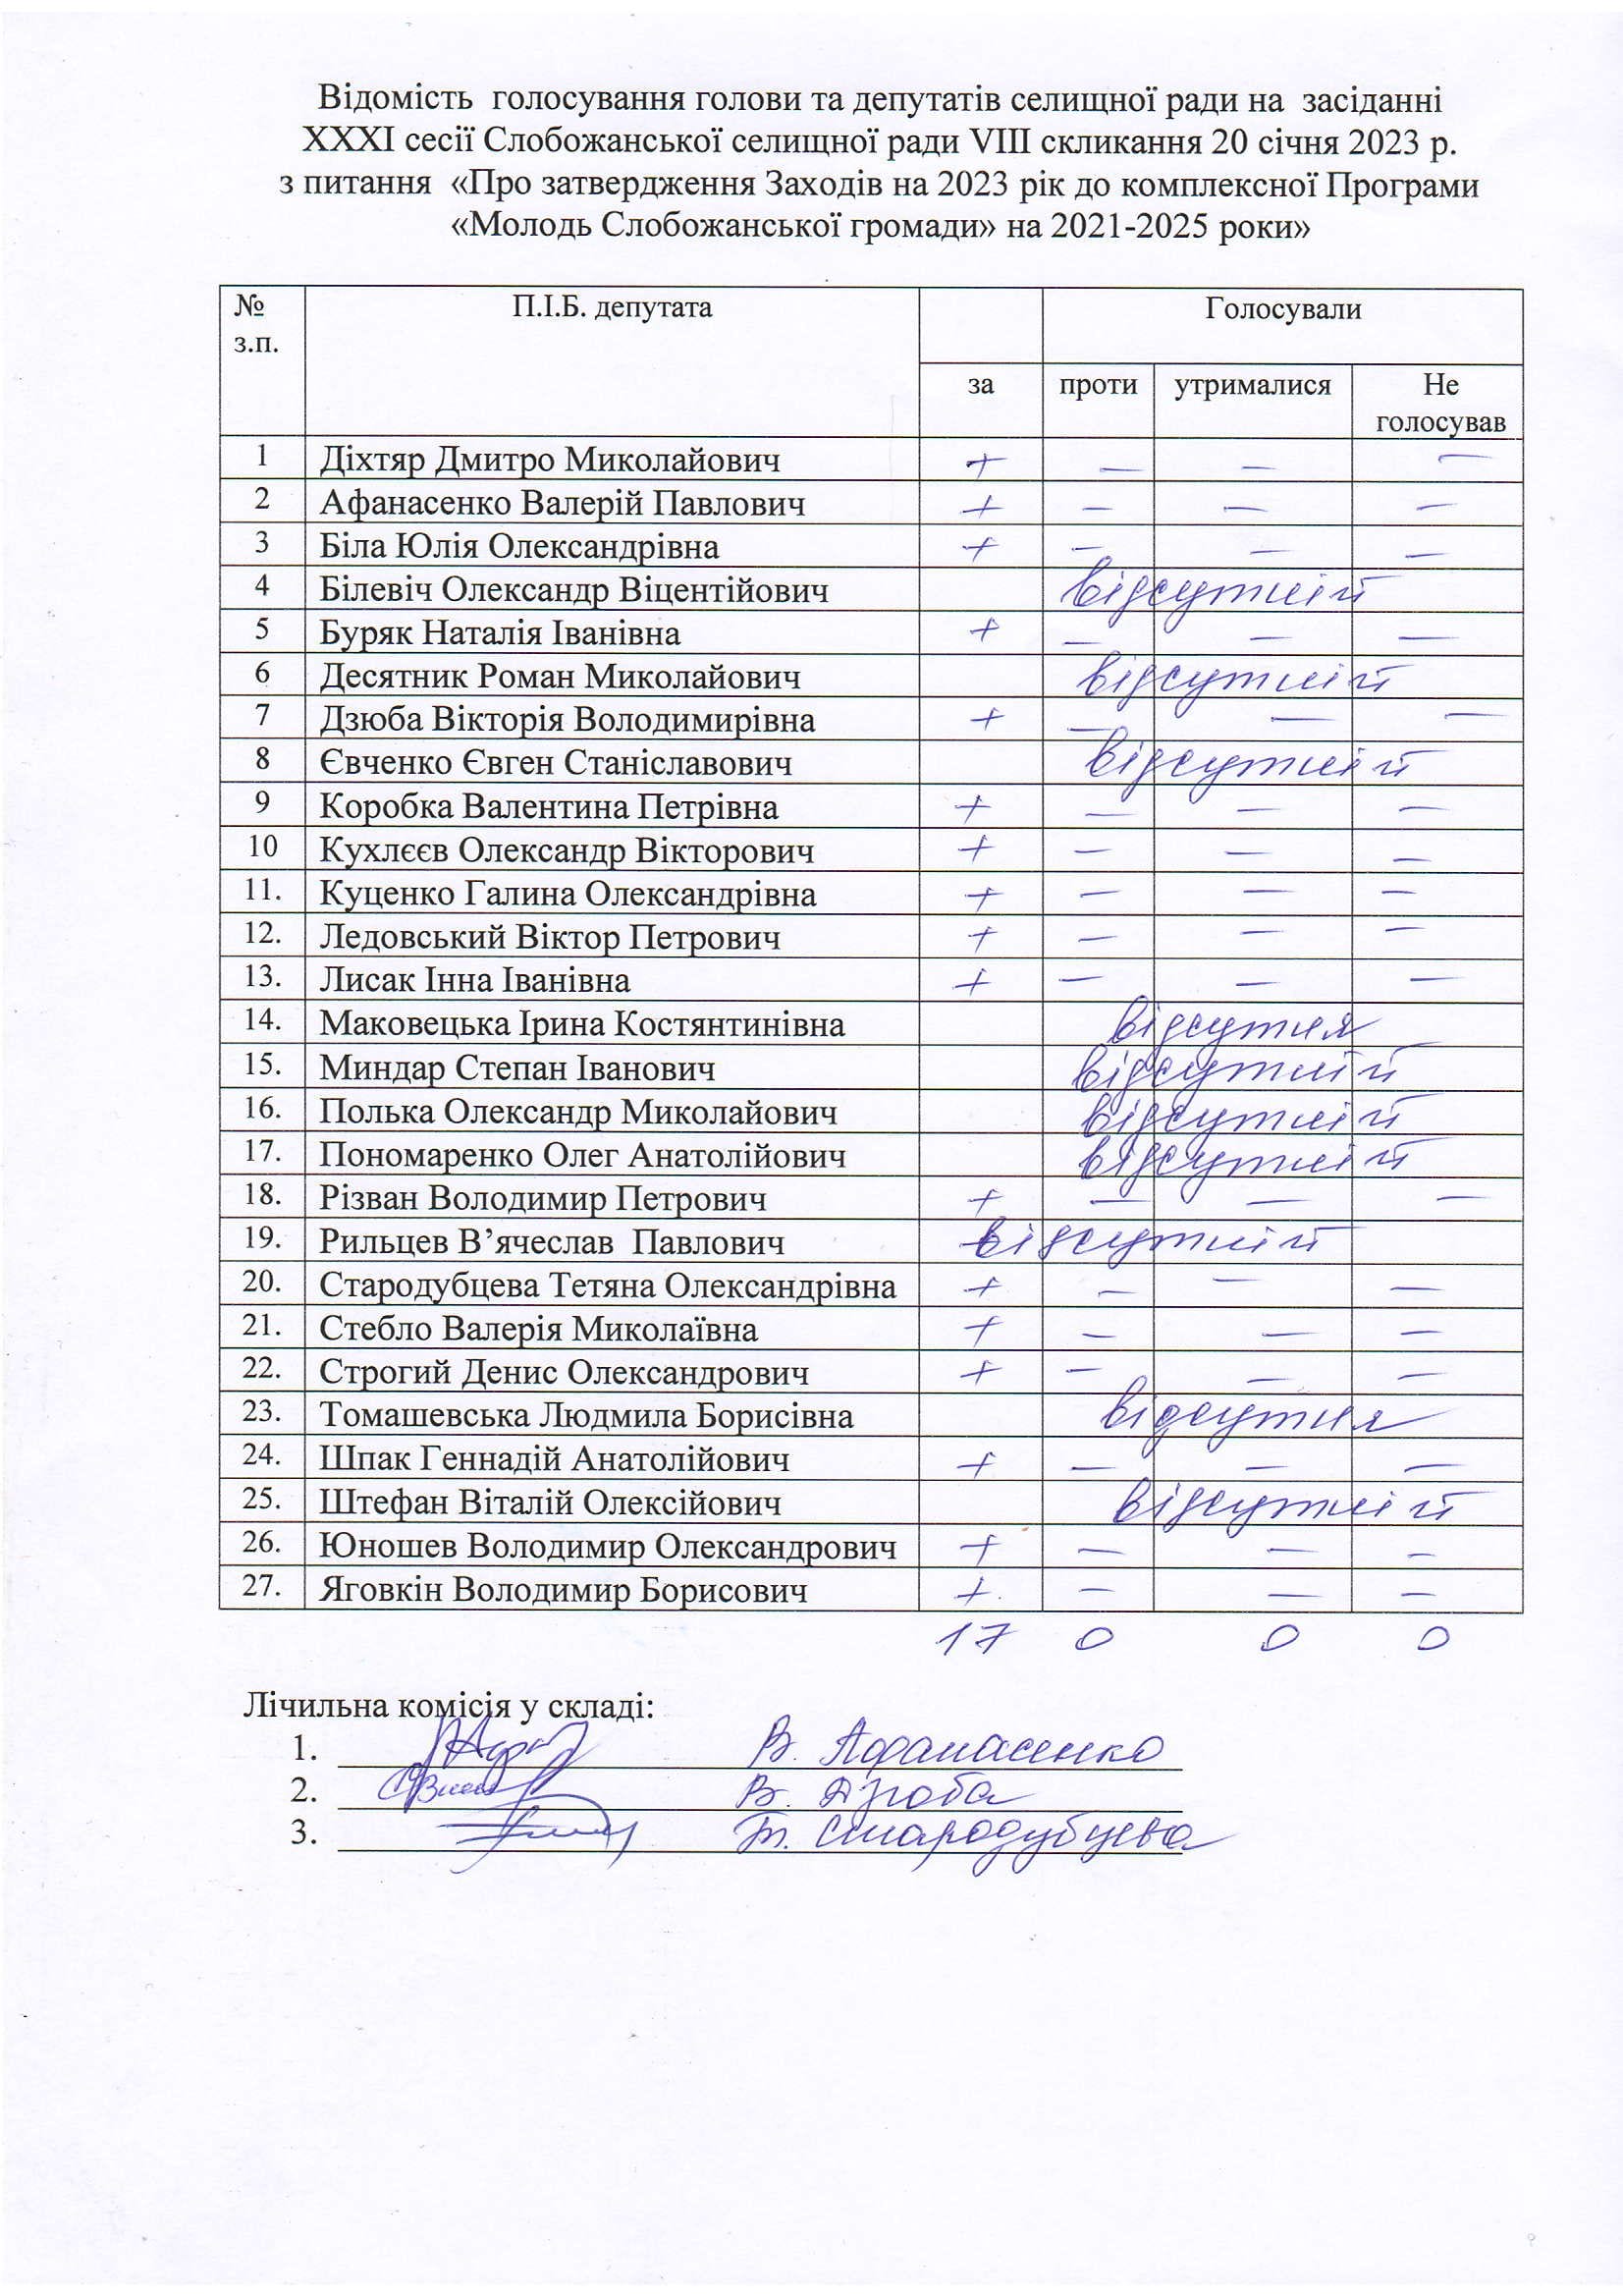 Відомість голосування голови та депутатів селищної ради на засіданні
XXXI сесії Слобожанської селищної ради VIII скликання 20 січня 2023 р.
з питання «Про затвердження Заходів на 2023 рік до комплексної Програми
«Молодь Слобожанської громади» на 2021-2025 роки»
№ з.п. П.І.Б. депутата Голосували
за проти утрималися Не голосував
1 Діхтяр Дмитро Миколайович + — — —
2 Афанасенко Валерій Павлович + — — —
3 Біла Юлія Олександрівна + — — —
4 Білевіч Олександр Віцентійович відсутній
5 Буряк Наталія Іванівна + — — —
6 Десятник Роман Миколайович відсутній
7 Дзюба Вікторія Володимирівна + — — —
8 Євченко Євген Станіславович відсутній
9 Коробка Валентина Петрівна + — — —
10 Кухлєєв Олександр Вікторович + — — —
11. Куценко Галина Олександрівна + — — —
12. Ледовський Віктор Петрович + — — —
13. Лисак Інна Іванівна + — — —
14. Маковецька Ірина Костянтинівна відсутня
15. Миндар Степан Іванович відсутній
16. Полька Олександр Миколайович відсутній
17. Пономаренко Олег Анатолійович відсутній
18. Різван Володимир Петрович + — — —
19. Рильцев В’ячеслав Павлович відсутній
20. Стародубцева Тетяна Олександрівна + — — —
21. Стебло Валерія Миколаївна + — — —
22. Строгий Денис Олександрович + — — —
23. Томашевська Людмила Борисівна відсутня
24. Шпак Геннадій Анатолійович + — — —
25. Штефан Віталій Олексійович відсутній
26. Юношев Володимир Олександрович + — — —
27. Яговкін Володимир Борисович + — — —
17 0 0 0
Лічильна комісія у складі:
1. В. Афанасенко
2. В. Дзюба
3. Т. Стародубцева